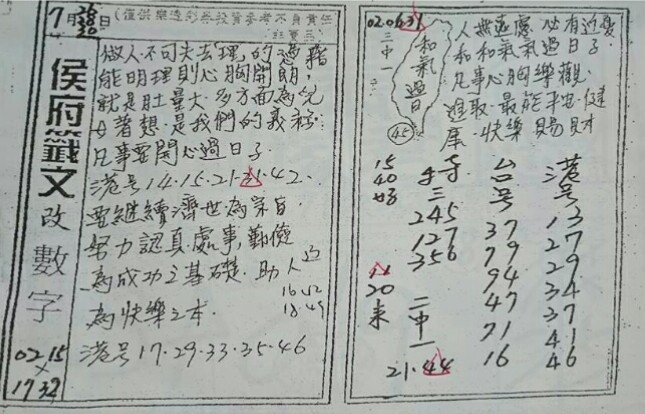 7月28日30
(僅供樂透彩券投資參考不負責任
侯府籤文
改數字
02 15
×
17 32
做人不可失去理,的憑藉
能明理則心胸開朗,
就是肚量大多方面為兒
母著想.是我們的義務
凡事要開心過日子.
港号14.15.21.31.42.
要繼續濟世為宗旨
努力認真處事,勤儉
為成功之基礎.助人
為快樂之本.
16 02
18 49
港号17.29.33.35.46
02.06.31
三中一
和氣過日
45
人無遠慮 必有近憂
和和氣氣過日子
凡事心胸樂觀.
進取.最能 健
康.快樂賜財
15
40
20
來
三
245
127
356
二中一
21.44
台号
37
79
94
47
71
16
港号
13
27
29
34
37
41
46